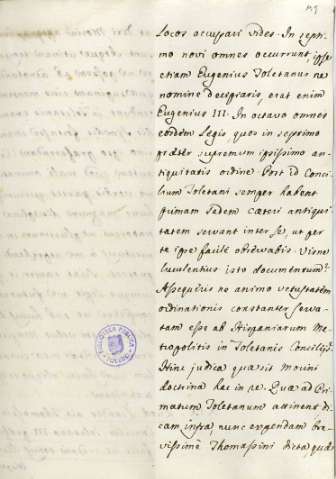 locos occupari vides. In septi-
mo novi omnes occurrunt, ipse
etiam Eugenius Toletanus ne
nomine decipiaris, erat enim
Eugenius III. In octavo omnes
eosdem legis quos in septimo
præter supremum ipsissimo an-
tiquitatis ordine Post id Conci-
lium Toletani semper habent
primam sedem cæteri antiqui-
tatem servant inter se, ut per
te ipse facilè observabis. Visne
luculentius isto documentum?
Assequeris ne animo vetustatem
ordinationis constanter serva-
tam esse ab Hispaniarum Me-
tropolitis in Toletanis Concilijs?
Hinc judica quæsis Morini
doctrina hac in re. Quæ ad Pri-
matum Toletanum attinent di-
cam infra, nunc expendam bre-
vissimè Thomassini dicta, quæ